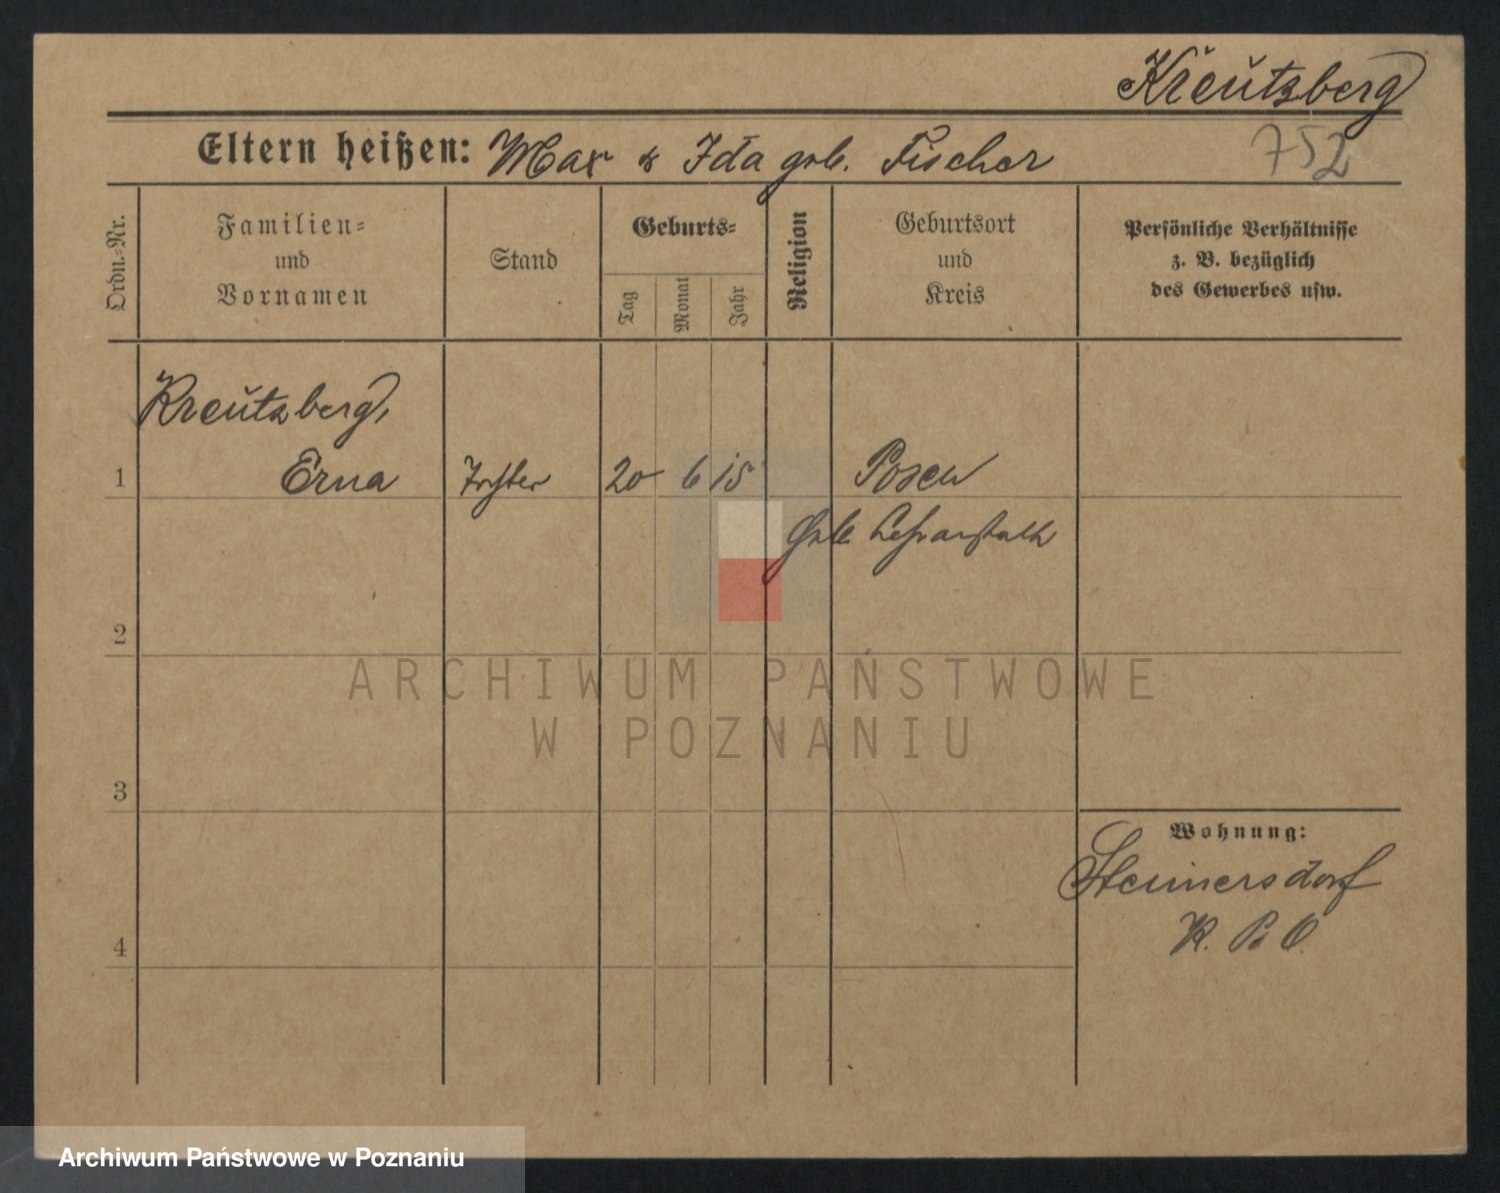 Kreutzberg
Eltern heißen: Max & Ida geb. Fischer
752
Ordn.-Nr.
Familien-
und
Vornamen
Stand
Geburts-
Tag
Monat
Jahr
Religion
Geburtsort
und
Kreis
Persönliche Verhältnisse
z. B. bezüglich
des Gewerbes usw.
Kreutzberg,
1 Erna Tochter 20 6 15 Posen
2
ARCHIWUM PAŃSTWOWE
W POZNANIU
3
Wohnung:
K. P. O.
4
Archiwum Państwowe w Poznaniu